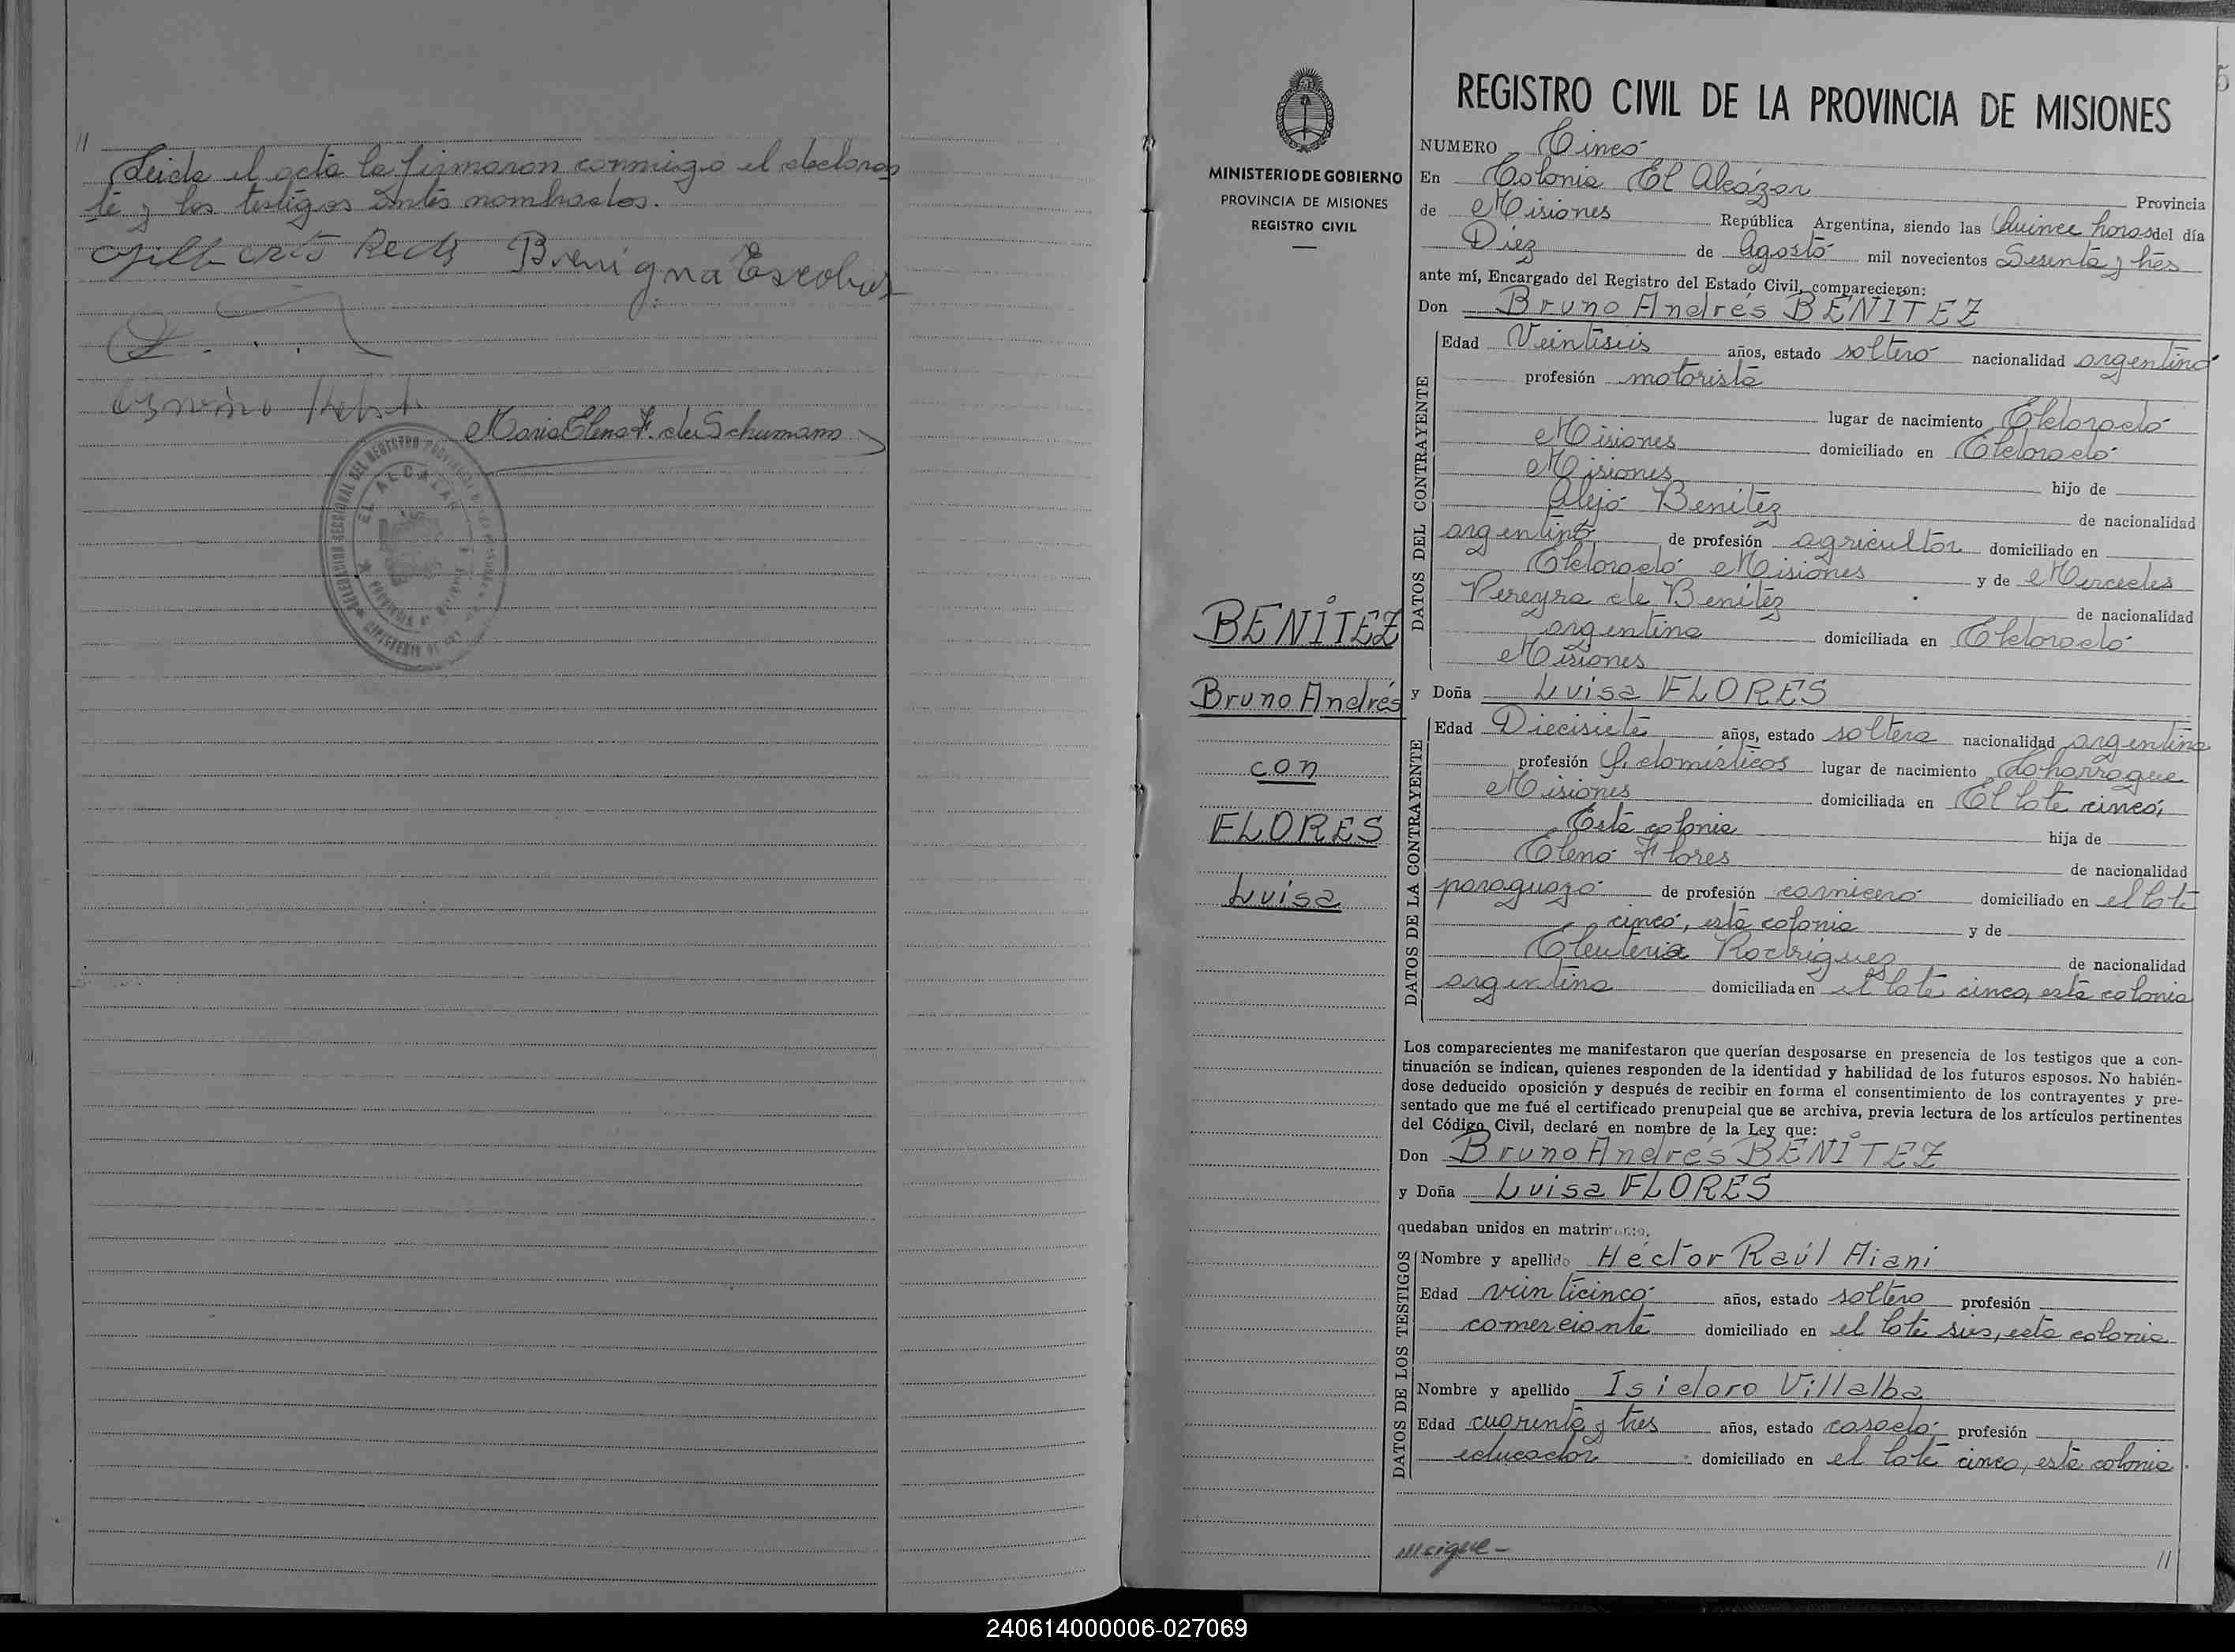 //
Leida el acta la firmaron conmigo el declaran
te y los testigos antes nombrados.
Benigna Escobar
Maria Elena F. de Schumann
EL ALCAZAR
5
MINISTERIO DE GOBIERNO
PROVINCIA DE MISIONES
REGISTRO CIVIL
BENÍTEZ
Bruno Andrés
con
FLORES
Luisa
REGISTRO CIVIL DE LA PROVINCIA DE MISIONES
NUMERO Cinco
En Colonia El Alcázar Provincia
de Misiones República Argentina, siendo las Quince horas del día
Diez de Agosto mil novecientos Sesenta y tres
ante mí, Encargado del Registro del Estado Civil, comparecieron:
Don Bruno Andrés BENÍTEZ
DATOS DEL CONTRAYENTE
Edad Veintiseis años, estado soltero nacionalidad argentino
profesión motorista
lugar de nacimiento Eldorado
Misiones domiciliado en Eldorado
Misiones hijo de
Alejo Benítez de nacionalidad
argentino de profesión agricultor domiciliado en
Eldorado Misiones y de Mercedes
Pereyra de Benítez de nacionalidad
argentina domiciliada en Eldorado
Misiones
y Doña Luisa FLORES
DATOS DE LA CONTRAYENTE
Edad Diecisiete años, estado soltera nacionalidad argentina
profesión Q. domésticos lugar de nacimiento Laharrague
Misiones domiciliada en El lote cinco,
Esta colonia hija de
Eleno Flores de nacionalidad
paraguayo de profesión carnicero domiciliado en el lote
cinco, esta colonia y de
Eleuteria Rodriguez de nacionalidad
argentina domiciliada en el lote cinco, esta colonia
Los comparecientes me manifestaron que querían desposarse en presencia de los testigos que a con-
tinuación se indican, quienes responden de la identidad y habilidad de los futuros esposos. No habién-
dose deducido oposición y después de recibir en forma el consentimiento de los contrayentes y pre-
sentado que me fué el certificado prenupcial que se archiva, previa lectura de los artículos pertinentes
del Código Civil, declaré en nombre de la Ley que:
Don Bruno Andrés BENÍTEZ
y Doña Luisa FLORES
quedaban unidos en matrimonio.
DATOS DE LOS TESTIGOS
Nombre y apellido Héctor Raúl Aiani
Edad veinticinco años, estado soltero profesión
comerciante domiciliado en el lote seis, esta colonia
Nombre y apellido Isidoro Villalba
Edad cuarenta y tres años, estado casado profesión
educador domiciliado en el lote cinco, esta colonia.
///sigue-
//
240614000006-027069